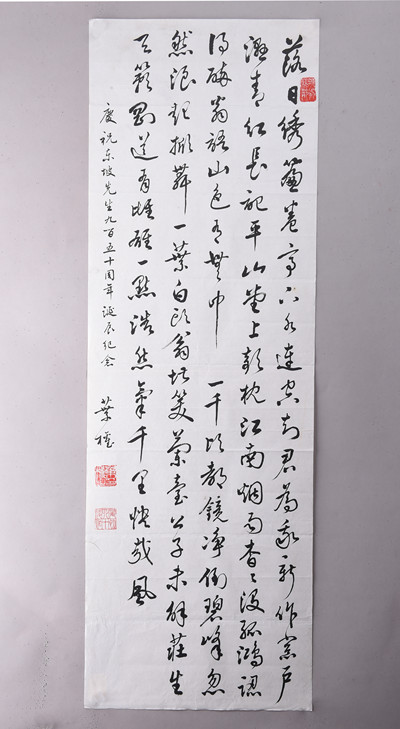 落日绣簾卷亭下水連空知君為我新作窓户
濕青红長記平山堂上欹枕江南烟雨杳〻没孤鴻認
得醉翁語山色有無中 一千頃都鏡净倒碧峰忽
然浪起掀舞一葉白頭翁堪笑蘭臺公子未解莊生
天籁剛道有雌雄一點浩然氣千里快哉風
慶祝东坡先生九百五十周年誕辰纪念
葉